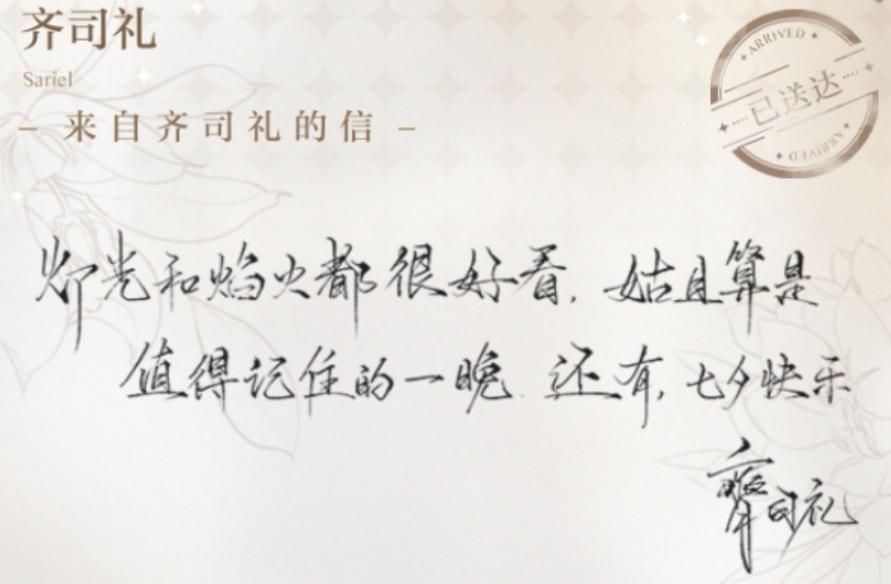 齐司礼
Sariel
– 来自齐司礼的信 –
ARRIVED
已送达
ARRIVED
灯光和焰火都很好看,姑且算是
值得记住的一晚.还有,七夕快乐
齊司礼